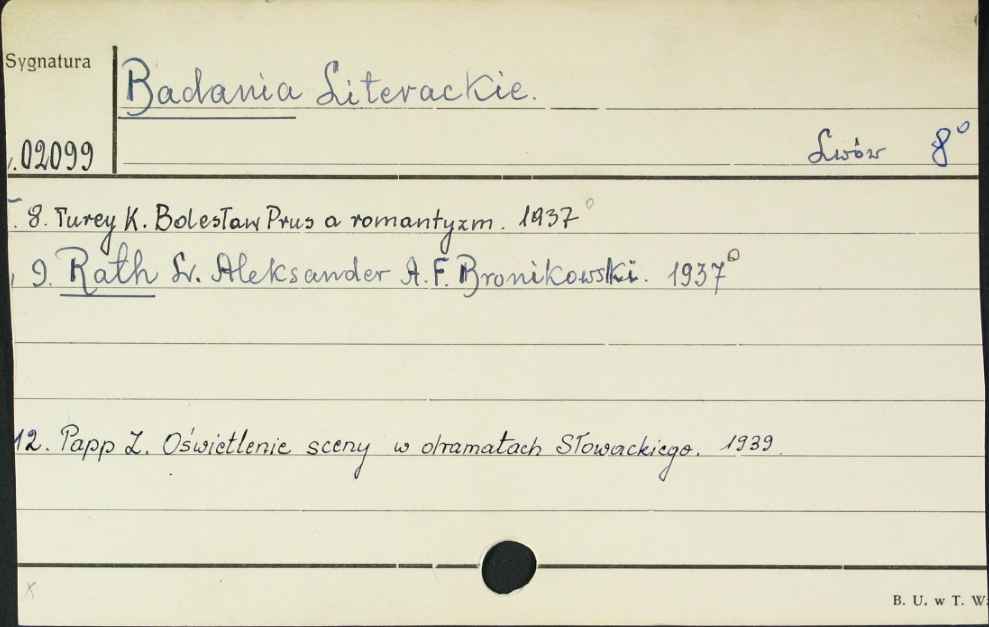 Sygnatura
Badania Literackie.
02099
Lwów 8°
8. Turey K. Bolesław Prus a romantyzm. 1937
9. Rath Lr. Aleksander A. F. Bronikowski. 1937
12. Papp Z. Oświetlenie sceny w dramatach Słowackiego. 1939.
x
B. U. w T. W.